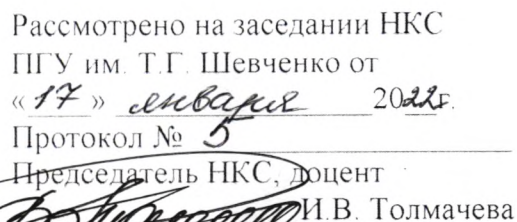 Рассмотрено на заседании НКС
ПГУ им. Т.Г. Шевченко от
«17» января 2022г.
Протокол № 5
Председатель НКС, доцент
И.В. Толмачева